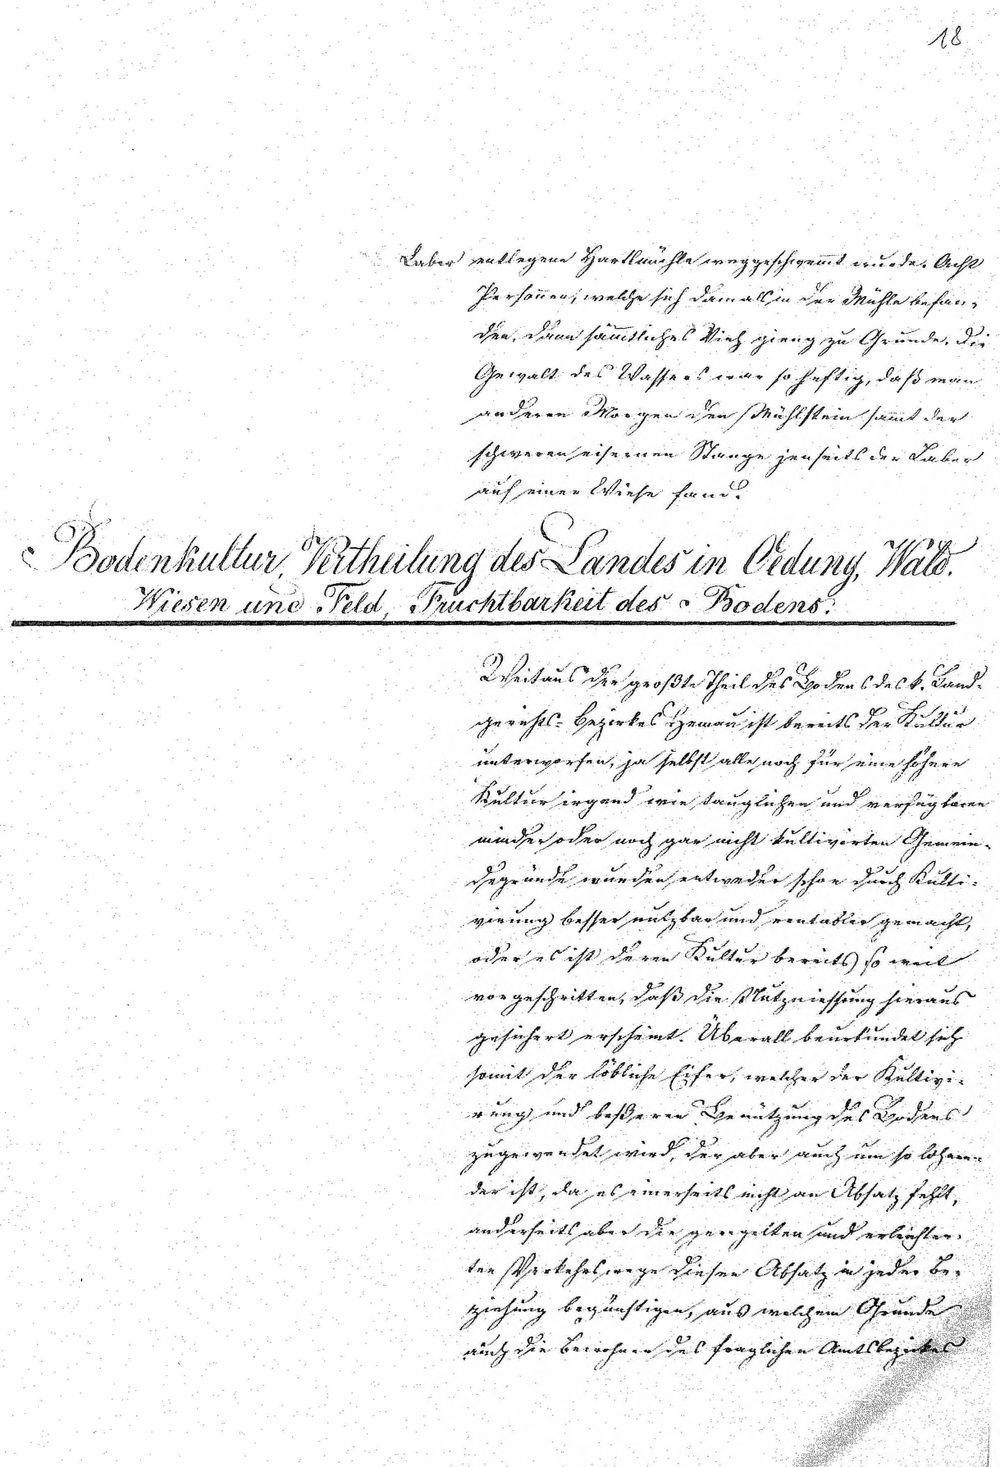 18
Laber entlegene Hartlmühle weggeschwemt wurde. Acht
Personen, welche sich damals in der Mühle befan-
den, dann sämtliches Vieh gieng zu Grunde. Die
Gewalt des Wassers war so heftig, daß man
anderen Morgen den Mühlstein samt der
schweren eisernen Stange jenseits der Laber
auf einer Wiese fand.
Bodenkultur, Vertheilung des Landes in Oedung, Wald,
Wiesen und Feld, Fruchtbarkeit des Bodens.
Weitaus der großte Theil des Bodens des k. Land-
gerichts-Bezirkes Hemau ist bereits der Kultur
unterworfen, ja selbst alle noch für eine höhere
Kultur irgend wie tauglichen und verfügbaren
minder oder noch gar nicht kultivirten Gemein-
degründe wurden entweder schon durch Kulti-
virung besser nutzbar und rentabler gemacht,
oder es ist deren Kultur bereits so weit
vorgeschritten, daß die Nutzniessung hieraus
gesichert erscheint. Überall beurkundet sich
somit der löbliche Eifer, welcher der Kultivi-
rung und beßeren Benützung des Bodens
zugewendet wird, der aber auch um so lohnen-
der ist, da es einerseits nicht an Absatz fehlt,
anderseits aber die geregelten und erleichter-
ten Verkehrswege diesen Absatz in jeder Be-
ziehung begünstigen, aus welchem Grunde
auch die Bewohner des fraglichen Amtsbezirkes